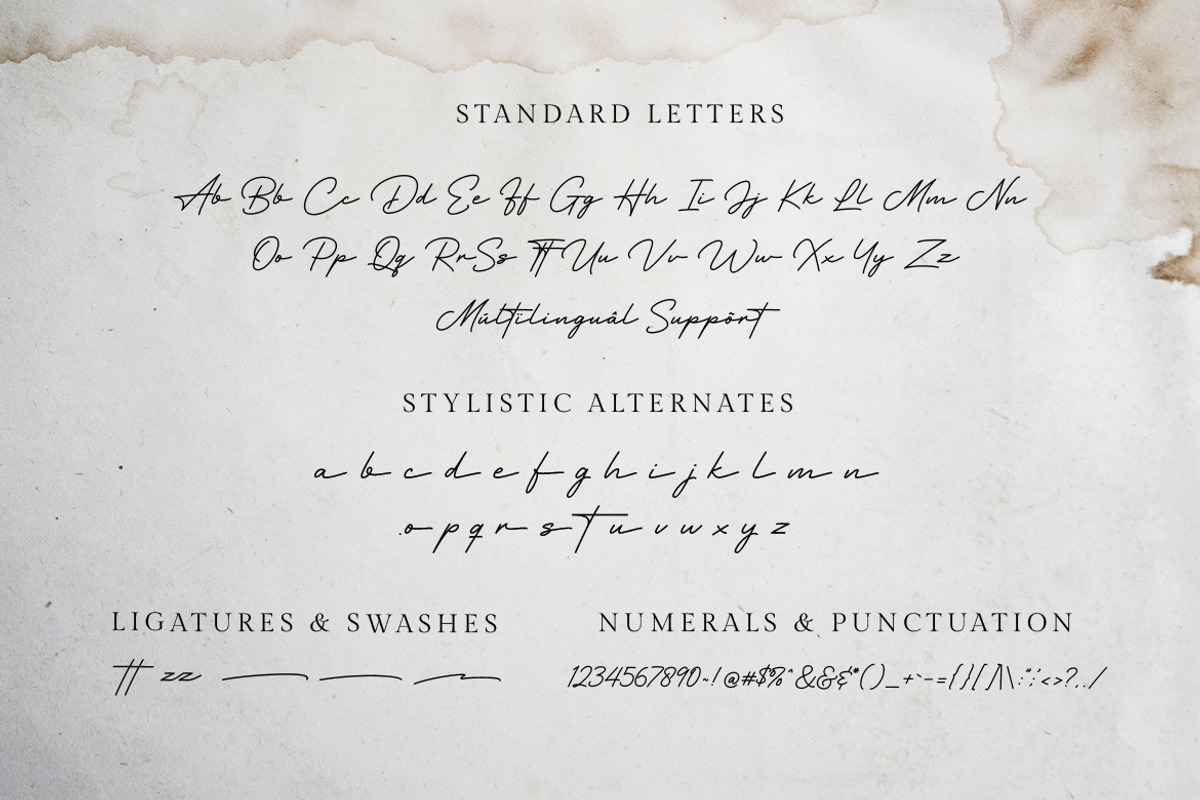 STANDARD LETTERS
Ab Bb Cc Dd Ee Ff Gg Hh Ii Jj Kk Ll Mm Nn
Oo Pp Qq Rr Ss Tt Uu Vv Ww Xx Yy Zz
Múltïlinguâl Suppõrt
STYLISTIC ALTERNATES
a b c d e f g h i j k l m n
o p q r s t u v w x y z
LIGATURES & SWASHES
tt zz
NUMERALS & PUNCTUATION
1234567890~! @#$%^&&&*()_+`-={}[]|\:";'<>?,./